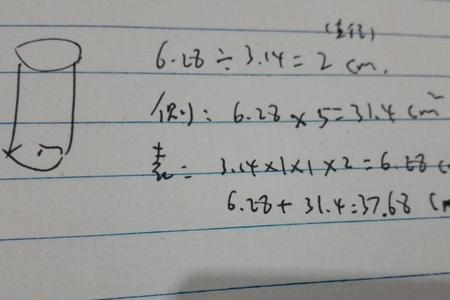 (直径)
6.28÷3.14=2 cm.
侧: 6.28×5=31.4 cm²
表: 3.14×1×1×2=6.28 c
6.28+31.4=37.68 (